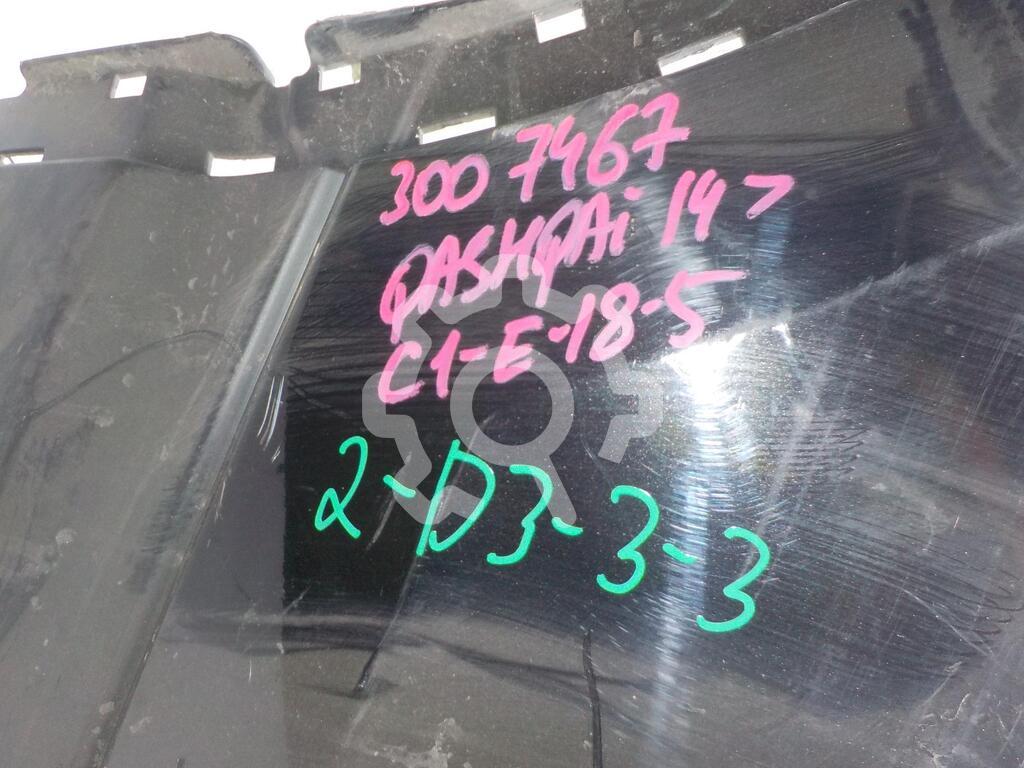 300 7467
QASHQAi 14 >
C1-E-18-5
2-D3-3-3